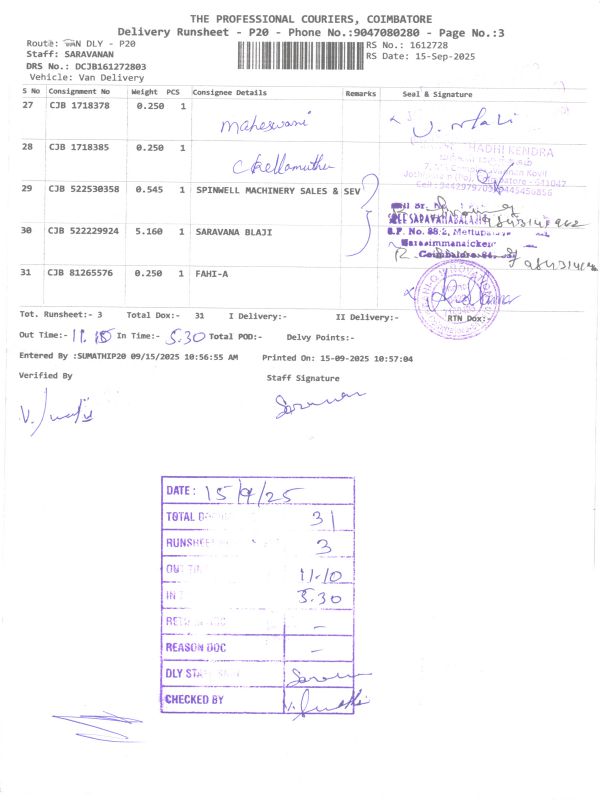 THE PROFESSIONAL COURIERS, COIMBATORE
Delivery Runsheet - P20 - Phone No.:9047080280 - Page No.:3
Route: VAN DLY - P20
RS No.: 1612728
Staff: SARAVANAN
RS Date: 15-Sep-2025
DRS No.: DCJB161272803
Vehicle: Van Delivery
S No Consignment No Weight PCS Consignee Details Remarks Seal & Signature
27 CJB 1718378 0.250 1 Maheswari
28 CJB 1718385 0.250 1 Chellamuthu
29 CJB 522530358 0.545 1 SPINWELL MACHINERY SALES & SEV
30 CJB 522229924 5.160 1 SARAVANA BLAJI
31 CJB 81265576 0.250 1 FAHI-A
Tot. Runsheet:- 3 Total Dox:- 31 I Delivery:- II Delivery:- RTN Dox:-
Out Time:- 11.10 In Time:- 5.30 Total POD:- Delvy Points:-
Entered By :SUMATHIP20 09/15/2025 10:56:55 AM Printed On: 15-09-2025 10:57:04
Verified By Staff Signature
DATE: 15/9/25
TOTAL 31
RUNSHEET 3
OUT 11.10
IN 5.30
REASON DOC -
DLY
CHECKED BY